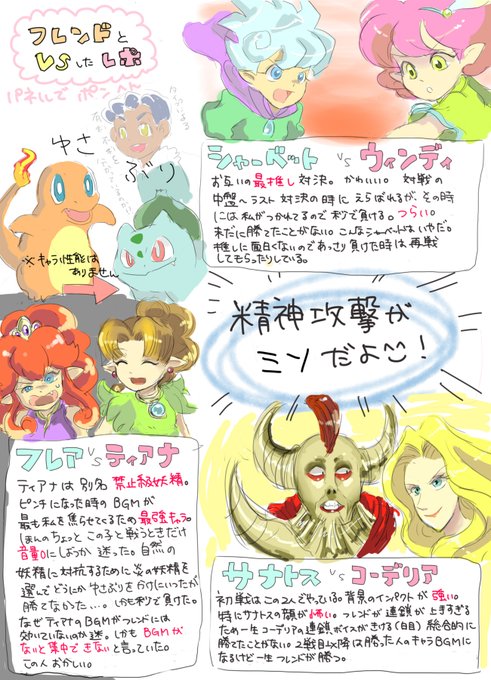 フレンドと
VSしたレポ
パネルでポンヘん
ゆさ
ぶり
※キャラ性能は
ありません
シャーベット VS ウィンディ
お互いの最推し対決。かわいい。対戦の
中盤〜ラスト対決の時にえらばれるが、その時
には私がつかれてるので秒で負ける。つらい。
未だに勝てたことがない。こんなシャーベットはいやだ。
推しに面白くないのであっさり負けた時は再戦
してもらったりしている。
精神攻撃が
ミソだよ!
フレア VS ティアナ
ティアナは別名 禁止級妖精。
ピンチになった時のBGMが
最も私を焦らせてくるため最強キャラ。
ほんのちょっとこの子と戦うときだけ
音量0にしようか迷った。自然の
妖精に対抗するために炎の妖精を
選んでどうにかゆさぶりをかけにいったが
勝てなかった…。しかも秒で負けた。
なぜティアナのBGMがフレンドには
効いていないのか謎。しかもBGMが
ないと集中できないと言っていた。
この人おかしい。
サナトス VS コーデリア
初戦はこの2人でやっている。背景のインパクトが強い。
特にサナトスの顔が怖い。フレンドが連鎖が上手すぎる
ため一生コーデリアの連鎖ボイスがきける(白目)総合的に
勝てたことがない。2戦目以降は勝った人のキャラBGMに
なるけど一生フレンドが勝つ。